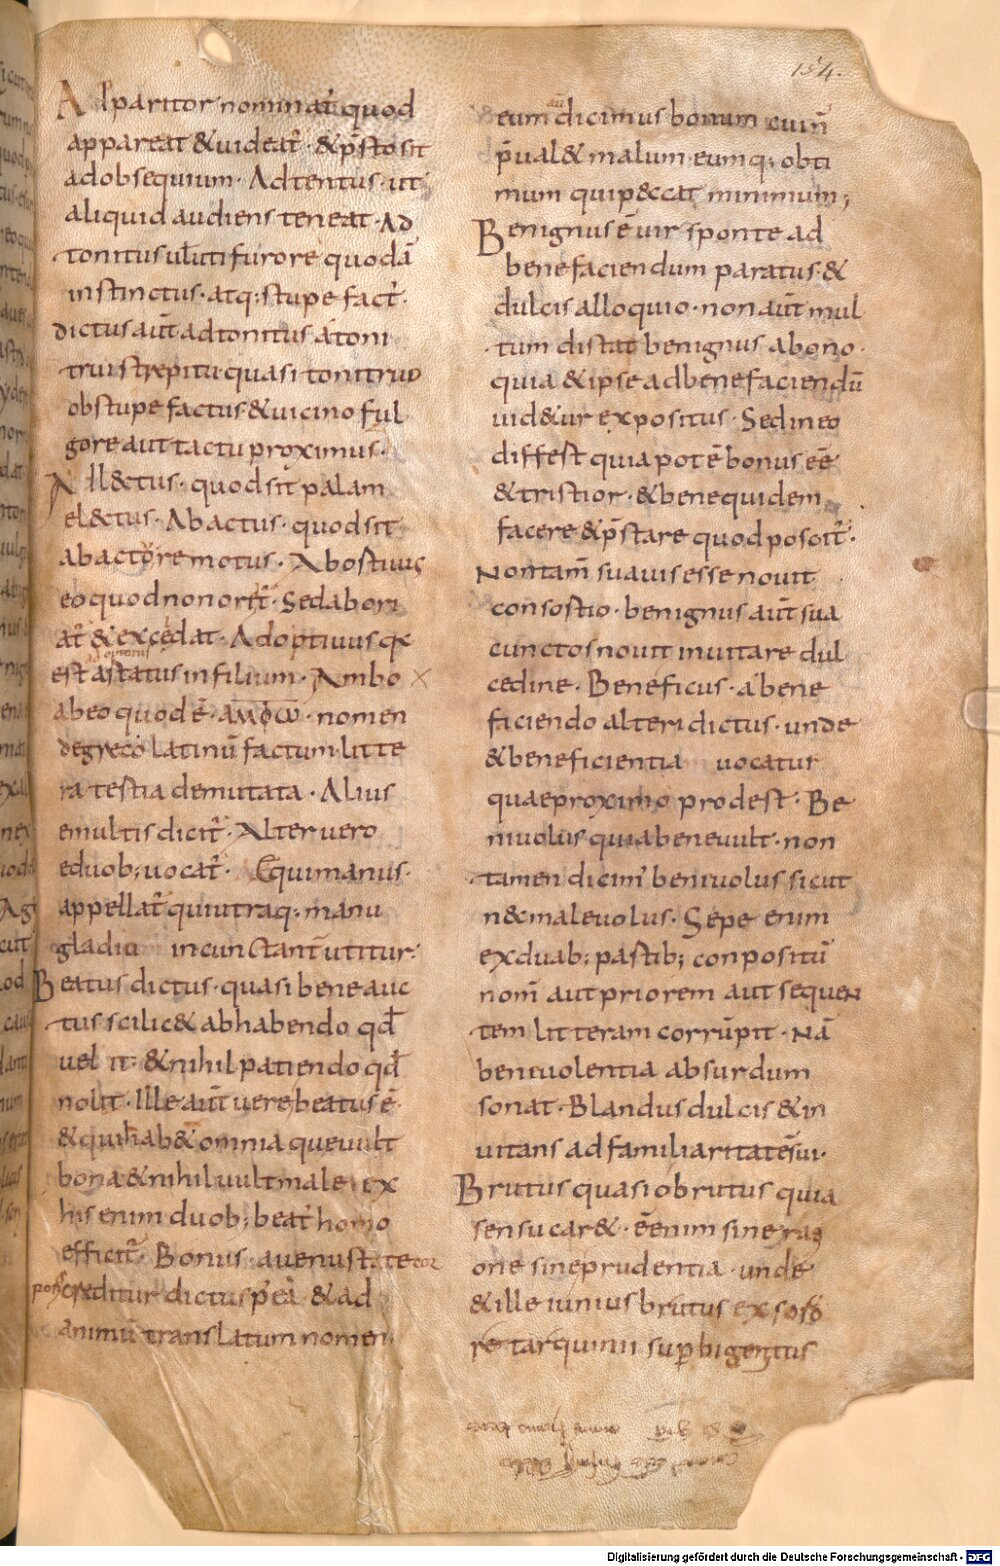 154.
Apparitor nominat̉ quod
appareat &uideat̉ · &p̄sto sit
adobsequium · Adtentus · ut
aliquid audiens teneat · Ad
tonitus uluti furore quodā
instinctus · atq; stupefact̉ ·
dictus aut̄ adtonitus a toni
trui strepitu quasi tonitruo
obstupefactus &uicino ful
gore aut tactu proximus ·
All&ctus · quod sit palam
el&ctus · Abactus · quod sit
ab actore motus · Abostiuus
eo quod non orit̉ · Sed abori
at̉ & excedat · Adoptiuus qx
optatus
est astatus in filium · Ambo
ab eo quod ē · ΑΜΦω · nomen
degreco latinū factum litte
ra testia demutata · Alius
emultis dicit̉ · Alter uero
eduob; uocat̉ · Equimanus ·
appellat̉ qui utraq; manu
gladiu incunctant̄ utitur ·
Beatus dictus · quasi bene auc
tus scilic& abhabendo qđ
uel it · &nihil patiendo qđ
nolit · Ille aut̄ uere beatus ē
&qui hab& omnia que uult
bona &nihil uult male · ex
his enim duob; beat̉ homo
efficit̉ · Bonus · auenustate cor
poris creditur dictus p̄ea & ad
animū translatum nomen
eum dicimus bonum cui n̄
p̄ual& malum eumq; obti
mum qui p&ccat minimum ;
Benignus ē uir sponte ad
benefaciendum paratus &
dulcis alloquio · non aut̄ mul
tum distat benignus abono ·
quia &ipse adbenefaciendū
uid&ur expositus · Sed in eo
differt quia pot ē bonus eē
&tristior · &bene quidem
facere &p̄stare quod poscit̉ ·
Non tam̄ suauis esse nouit
consostio · benignus aut̄ sua
cunctos nouit inuitare dul
cedine · Beneficus · abene
faciendo alteri dictus · unde
&beneficientia uocatur
quae proximo prodest · Be
niuolus quia bene uult · non
tamen dicim̉ beniuolus sicut
n& maleuolus · Sepe enim
ex duab; pastib; conpositū
nom̄ aut priorem aut sequen
tem litteram corrūpit · Nā
beniuolentia absurdum
sonat · Blandus dulcis &in
uitans ad familiaritatē sui ·
Brutus quasi obrutus quia
sensu car& · ē enim sine rati
one sine prudentia · unde
&ille iunius brutus ex soro
re tarquinii supbi genitus